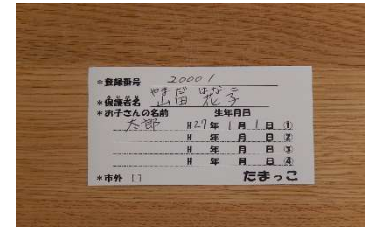 *登録番号 20001
やまだ はなこ
*保護者名 山田 花子
*お子さんの名前 生年月日
太郎 H27年1月1日①
年 月 日②
年 月 日③
年 月 日④
*市外 [ ] たまっこ